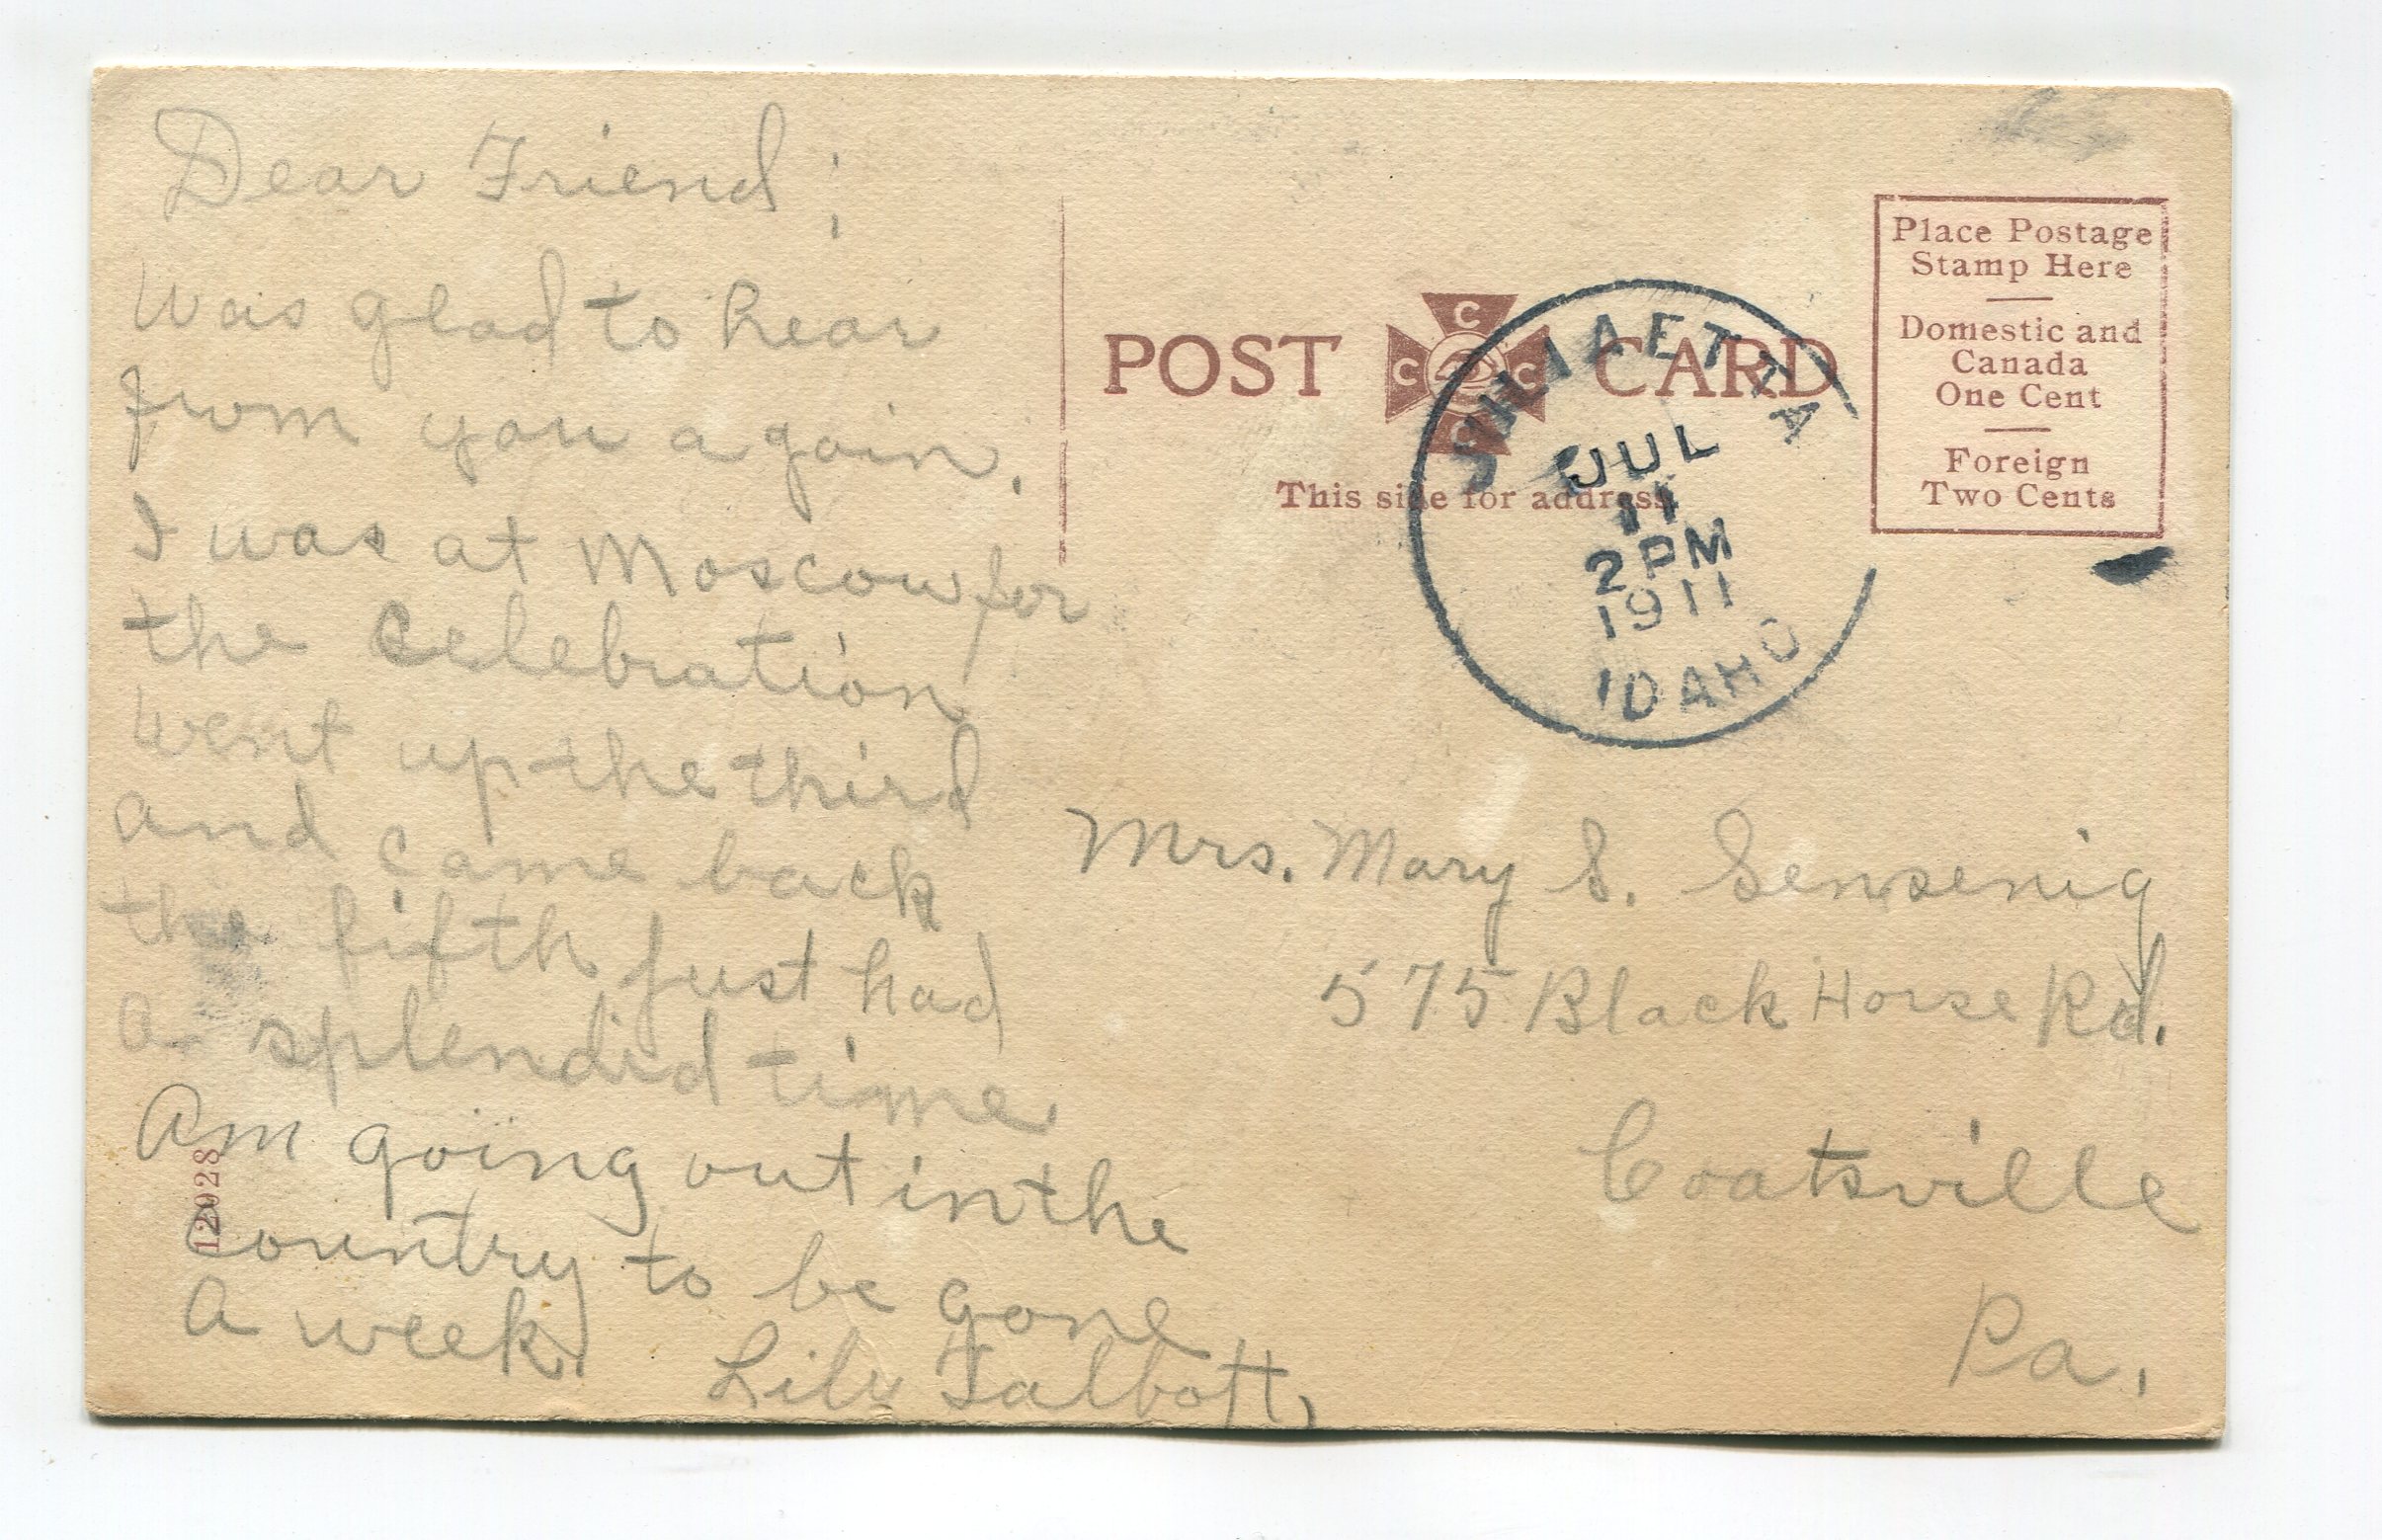 Dear Friend;
Was glad to hear
from you again.
I was at Moscow for
the Celebration
Went up the third
and came back
the fifth just had
a splendid time.
Am going out in the
country to be gone
a week.
Lily Talbott,
12028
POST CARD
C
C C
C
This side for address
Place Postage
Stamp Here
Domestic and
Canada
One Cent
Foreign
Two Cents
JULIAETTA
JUL
11
2 PM
1911
IDAHO
Mrs. Mary S. Sensenig
575 Black Horse Rd.
Coatsville
Pa.